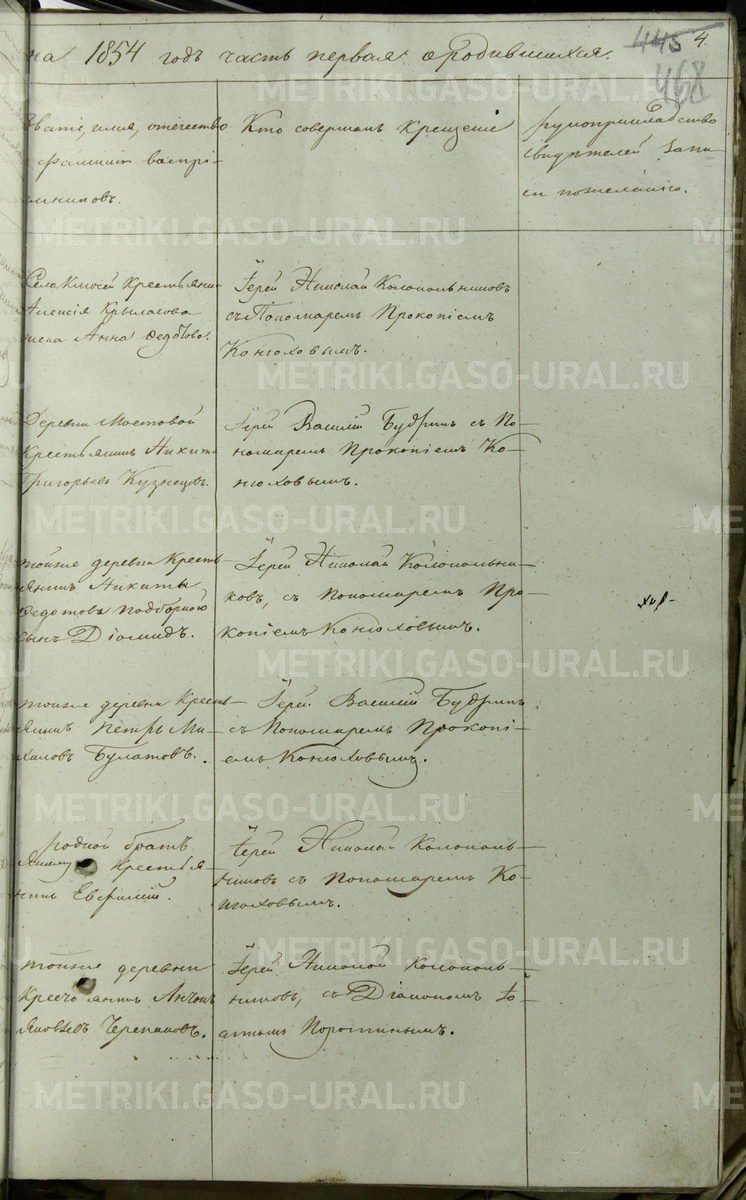 на 1854 годъ часть первая о родившихся.
445 4.
468
Званіе, имя, отечество
и фамилія воспрі-
емниковъ.
Кто совершалъ крещеніе
рукоприкладство
свидѣтелей запи-
си по желанію.
Села крестьяни-
Алексія Крыласова
жена Анна Федотова.
Іерей Николай Колокольниковъ
съ Пономаремъ Прокопіемъ
Конюховымъ.
Деревни Мостовой
крестьянинъ Никита
Григорьевъ Кузнецовъ.
Іерей Василій Будринъ съ По-
номаремъ Прокопіемъ Ко-
нюховымъ.
тойже деревни кресть-
янина Никиты
Федотова Подборнаго
сынъ Діомидъ.
Іерей Николай Колокольни-
ковъ, съ Пономаремъ Про-
копіемъ Конюховымъ.
тойже деревни кресть-
янинъ Петръ Ми-
хаиловъ Булатовъ.
Іерей Василій Будринъ
съ Пономаремъ Прокопі-
емъ Конюховымъ.
родной братъ
крестья-
нинъ Евфимій.
Іерей Николай Колоколь-
никовъ съ Пономаремъ Ко-
нюховымъ.
тойже деревни
крестьянинъ Антонъ
Яковлевъ Черепановъ.
Іерей Николай Колоколь-
никовъ, съ Діакономъ Іо-
анномъ Коротинымъ.
METRIKI.GASO-URAL.RU